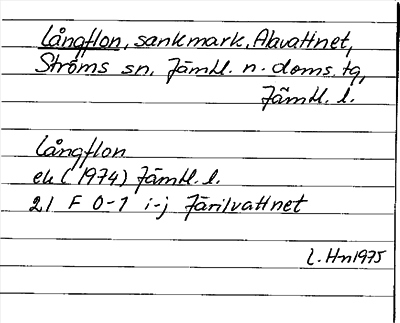 Långflon, sankmark, Alavattnet,
Ströms sn, Jämtl. n. doms. tg,
Jämtl. l.
Långflon
ek (1974) Jämtl. l.
21 F 0-1 i-j Järilvattnet
L. Hn 1975